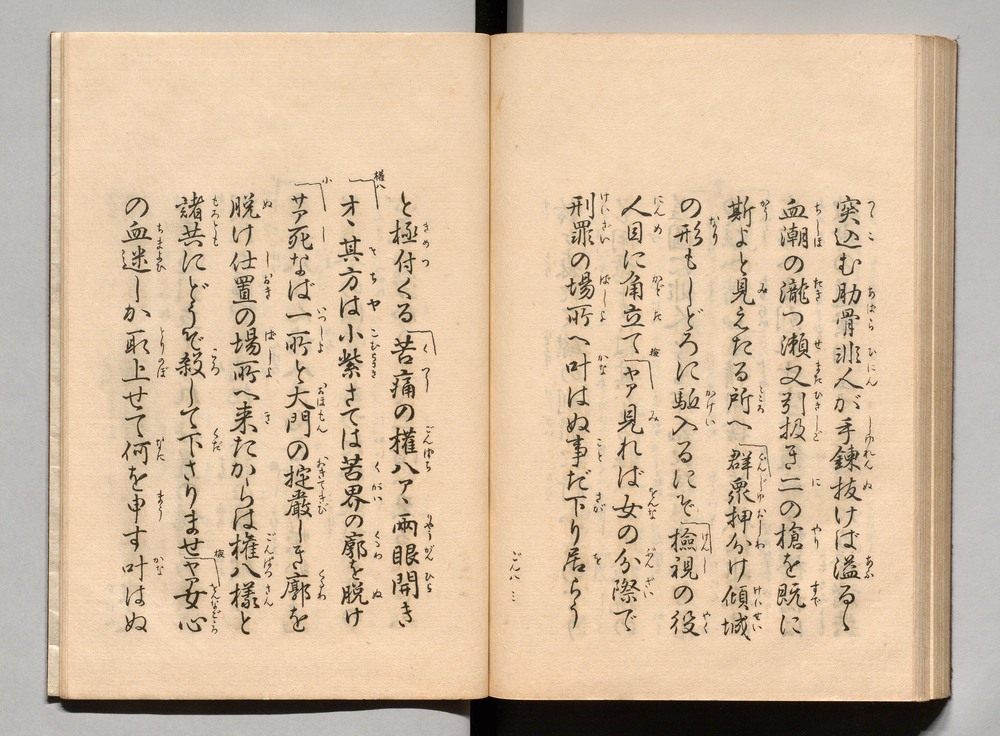 突込む肋骨非人が手錬抜けば溢るゝ
血潮の瀧つ瀬又引扱き二の槍を既に
斯よと見えたる所へ群衆押分け傾城
の形もしどろに駈入るにぞ撿視の役
人目に角立てヤア見れば女の分際で
刑罪の場所へ叶はぬ事だ下り居らう
ごん八 三
と極付くる苦痛の権八ハア両眼開き
オヽ其方は小紫さては苦界の廓を脱け
サア死なば一所と大門の掟厳しき廓を
脱け仕置の場所へ来たからは権八様と
諸共にどうぞ殺して下さりませヤア女心
の血迷しか取上せて何を申す叶はぬ